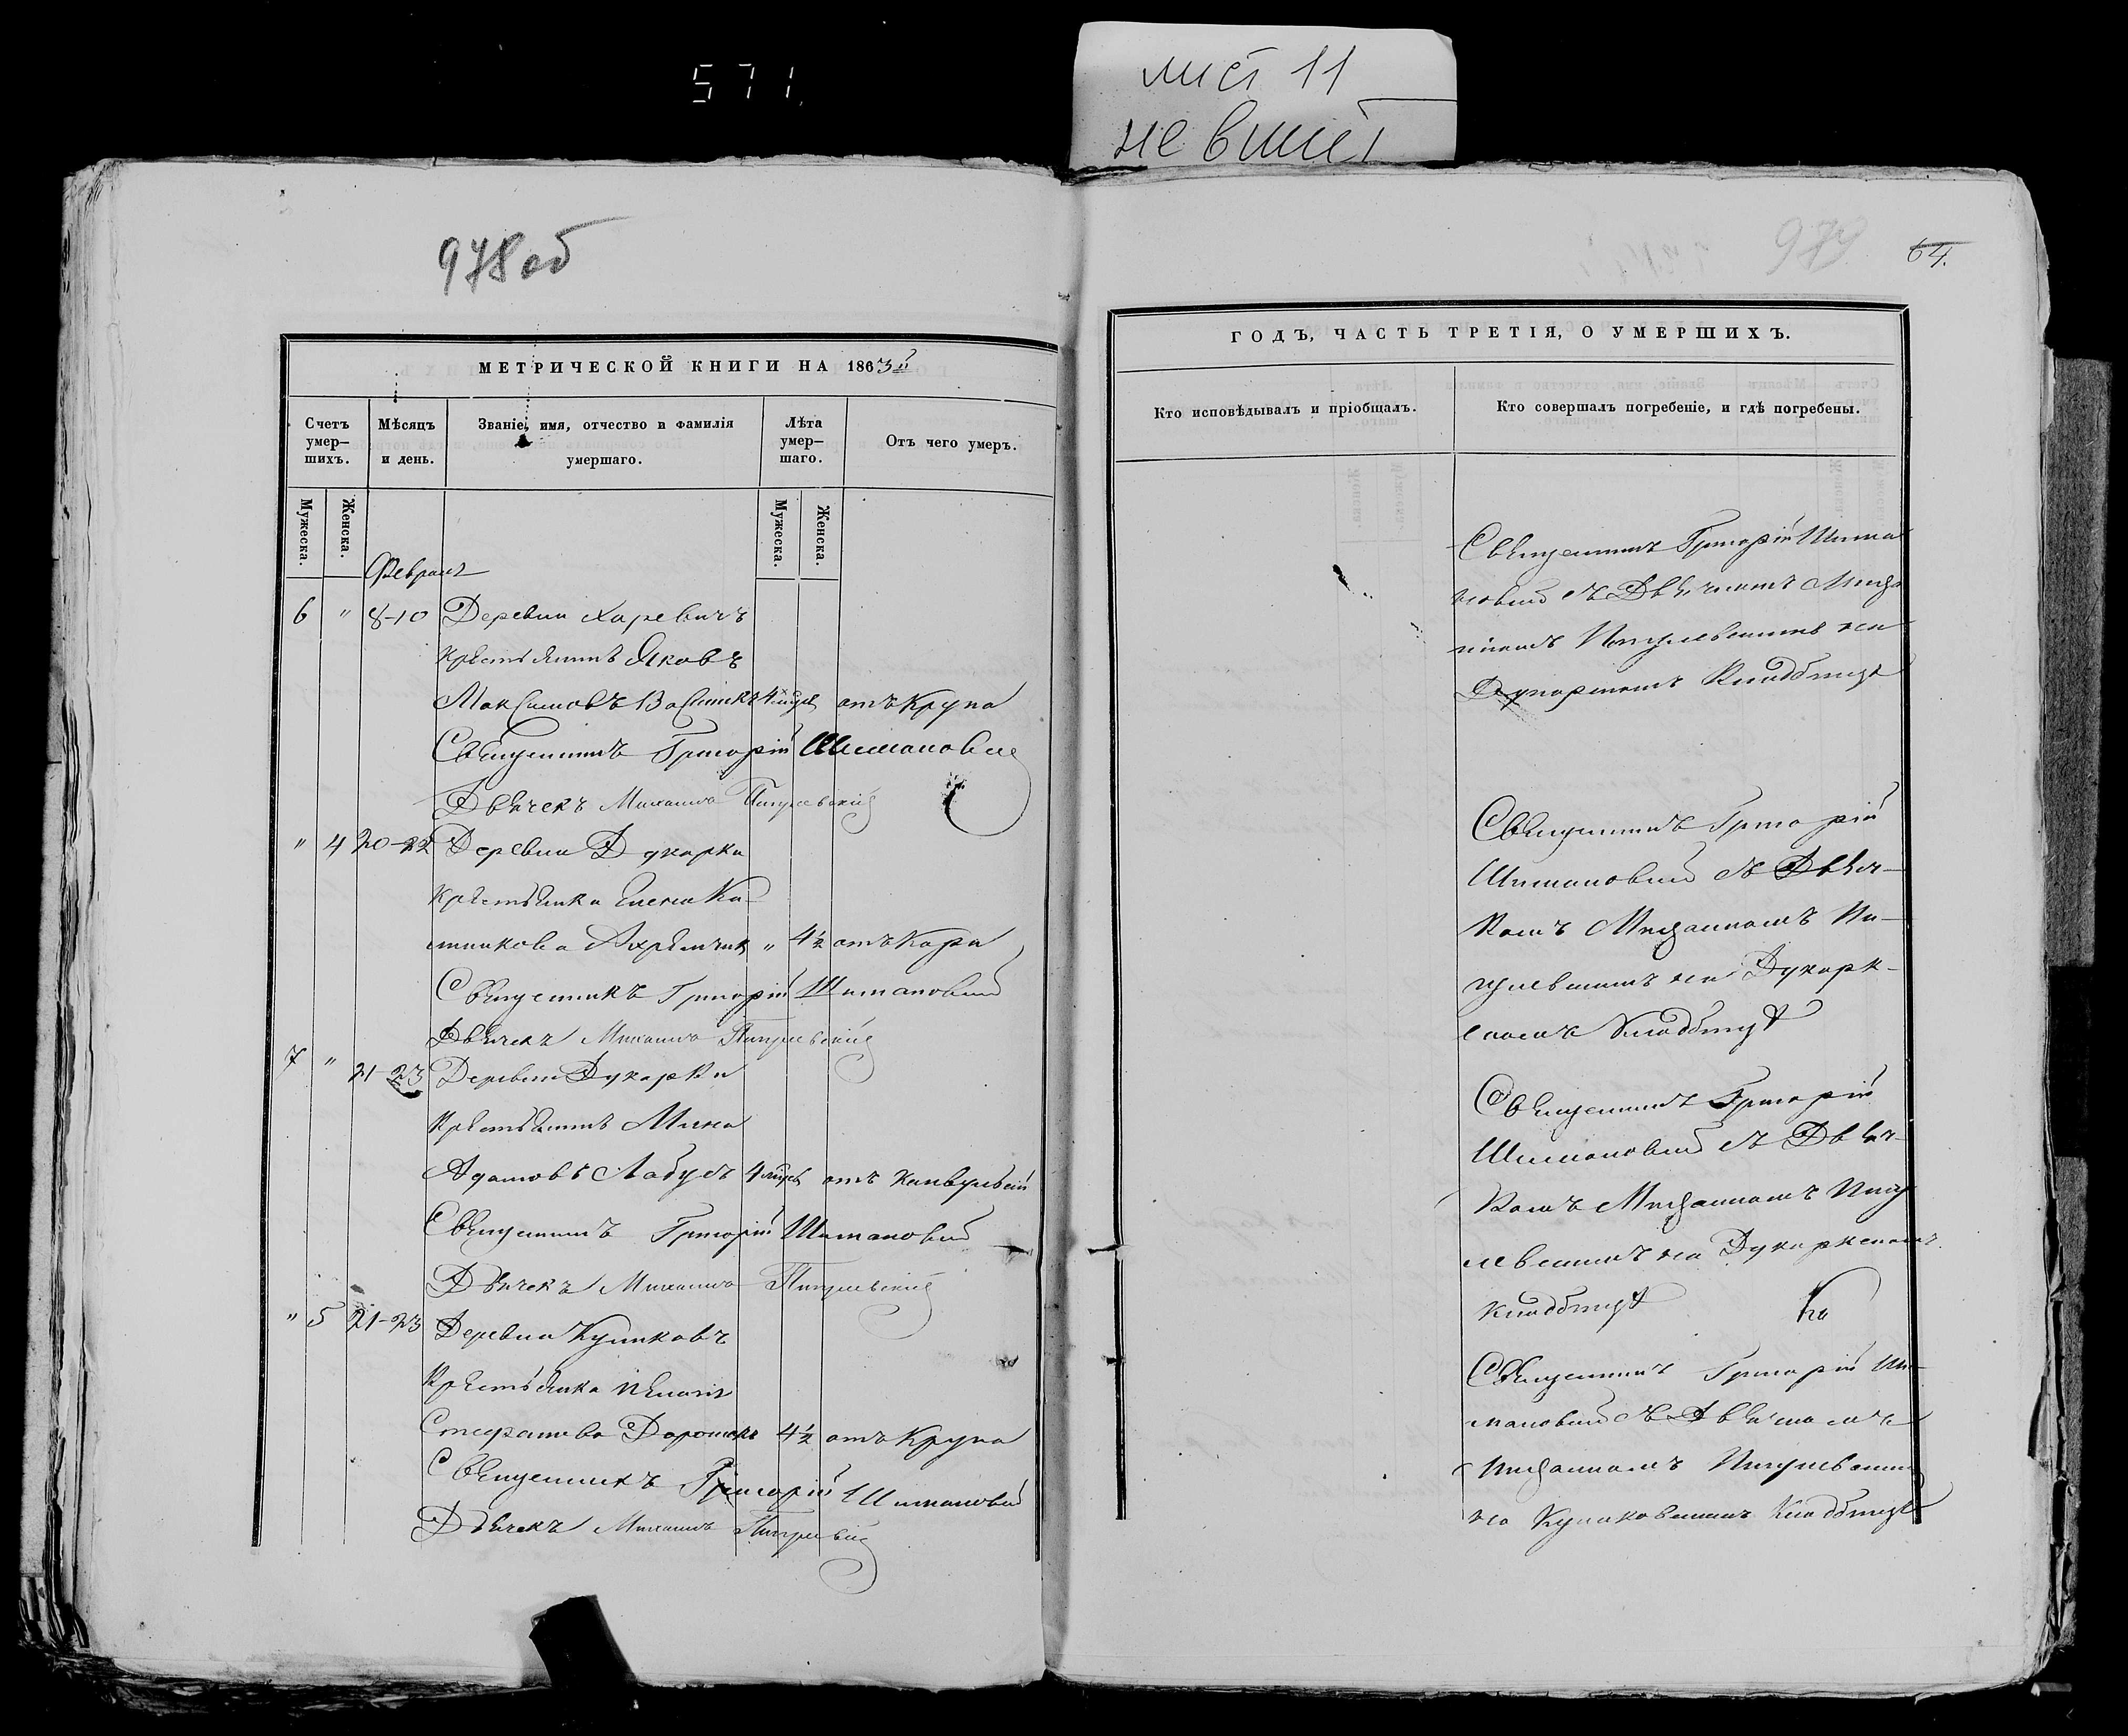 571
лист 11
не вшит
978 об
979
64.
МЕТРИЧЕСКОЙ КНИГИ НА 1863й
Счетъ умер–шихъ.
Мѣсяцъ и день.
Званіе, имя, отчество и фамилія умершаго.
Лѣта умер–шаго.
Отъ чего умеръ.
Мужеска.
Женска.
Мужеска.
Женска.
Февраль
6 " 8-10 Деревни Харевичъ
крестьянинъ Яковъ
Максимовъ 4 отъ Крупа
Священникъ Григорій Шимановскій
Дьячекъ Михаилъ Пигулевскій
" 4 20-22 Деревни Дукорки
крестьянка Елена
Ахремчикъ " 4½ отъ Кори
Священникъ Григорій Шимановскій
Дьячекъ Михаилъ Пигулевскій
7 " 21-23 Деревни Дукорки
Крестьянинъ Мина
Адамовъ Лабусъ 4 отъ конвульсій
Священникъ Григорій Шимановскій
Дьячекъ Михаилъ Пигулевскій
" 5 21-23 Деревни Куликовъ
Крестьянка
Стефанова 4½ отъ Крупа
Священникъ Григорій Шимановскій
Дьячекъ Михаилъ Пигулевскій
ГОДЪ, ЧАСТЬ ТРЕТІЯ, О УМЕРШИХЪ.
Кто исповѣдывалъ и пріобщалъ.
Кто совершалъ погребеніе, и гдѣ погребены.
Священникъ Григорій Шима
новскій съ Дьячкомъ Миха
иломъ Пигулевскимъ на
Дукорскомъ Кладбищѣ
Священникъ Григорій
Шимановскій съ Дьяч–
комъ Михаиломъ Пи–
гулевскимъ на Дукорк–
скомъ Кладбищѣ
Священникъ Григорій
Шимановскій съ Дьяч–
комъ Михаиломъ Пигу
левскимъ на Дукоркскомъ
кладбищѣ
Священникъ Григорій Ши–
мановскій съ Дьячкомъ
Михаиломъ Пигулевскимъ
на Куликовскомъ Кладбищѣ